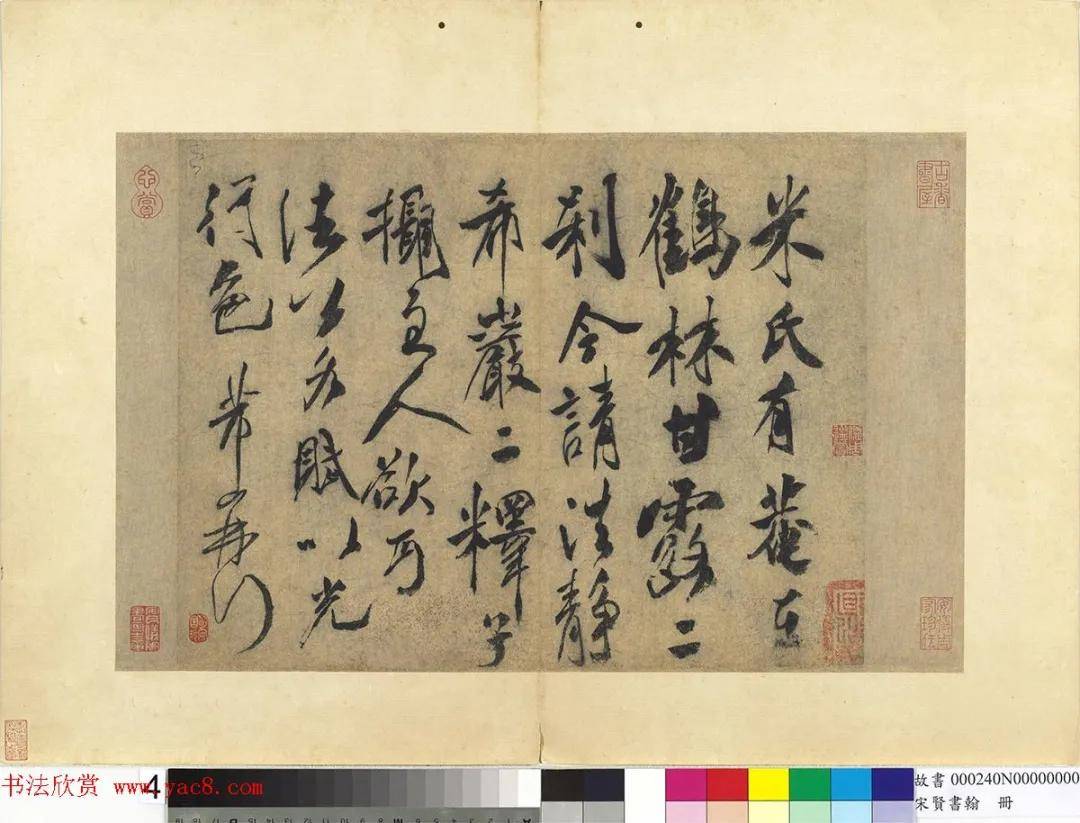 米氏有菴在
鶴林甘露二
刹今請法靜
希巖二釋子
攝主人欲丐
法公各賦以光
行色 芾再拜
书法欣赏 www.yac8.com
4
故書 000240N00000000
宋賢書翰 冊